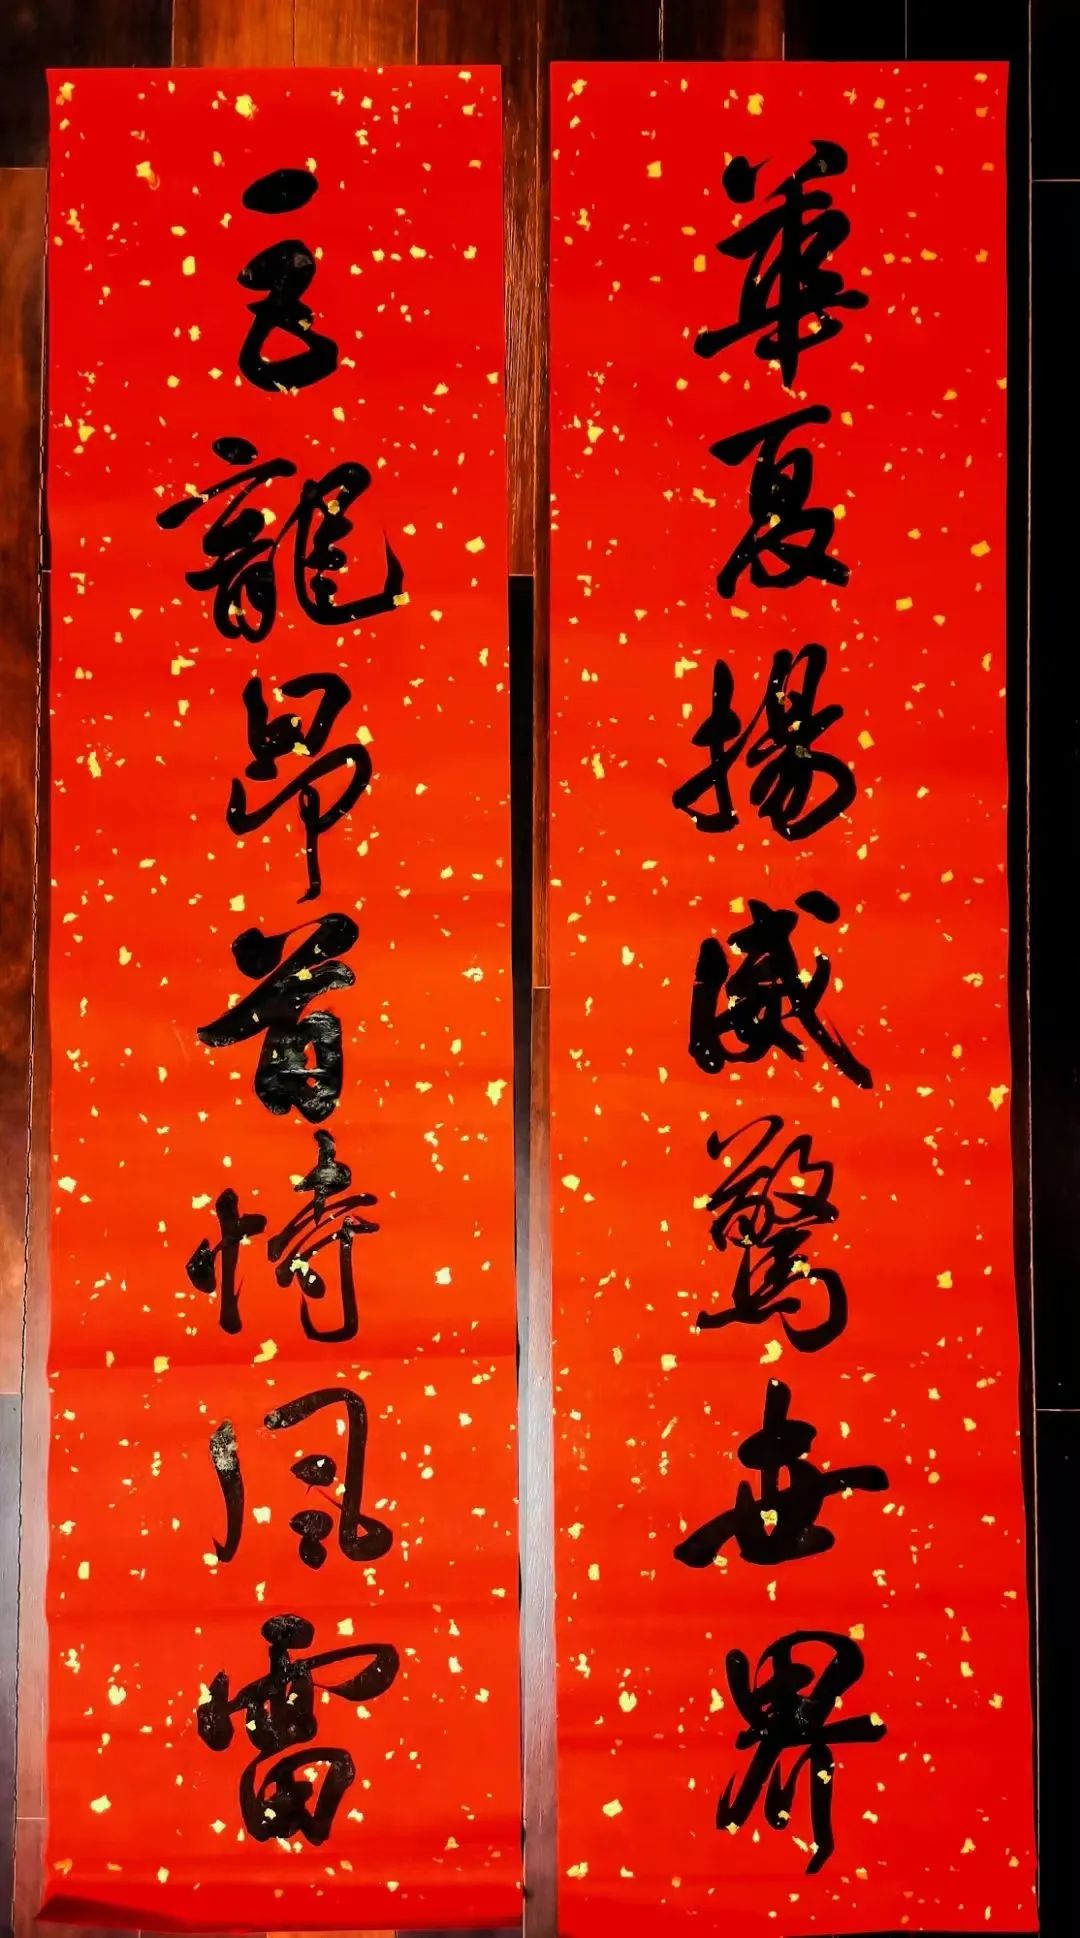 華夏揚威驚世界
巨龍昂首恃風雷